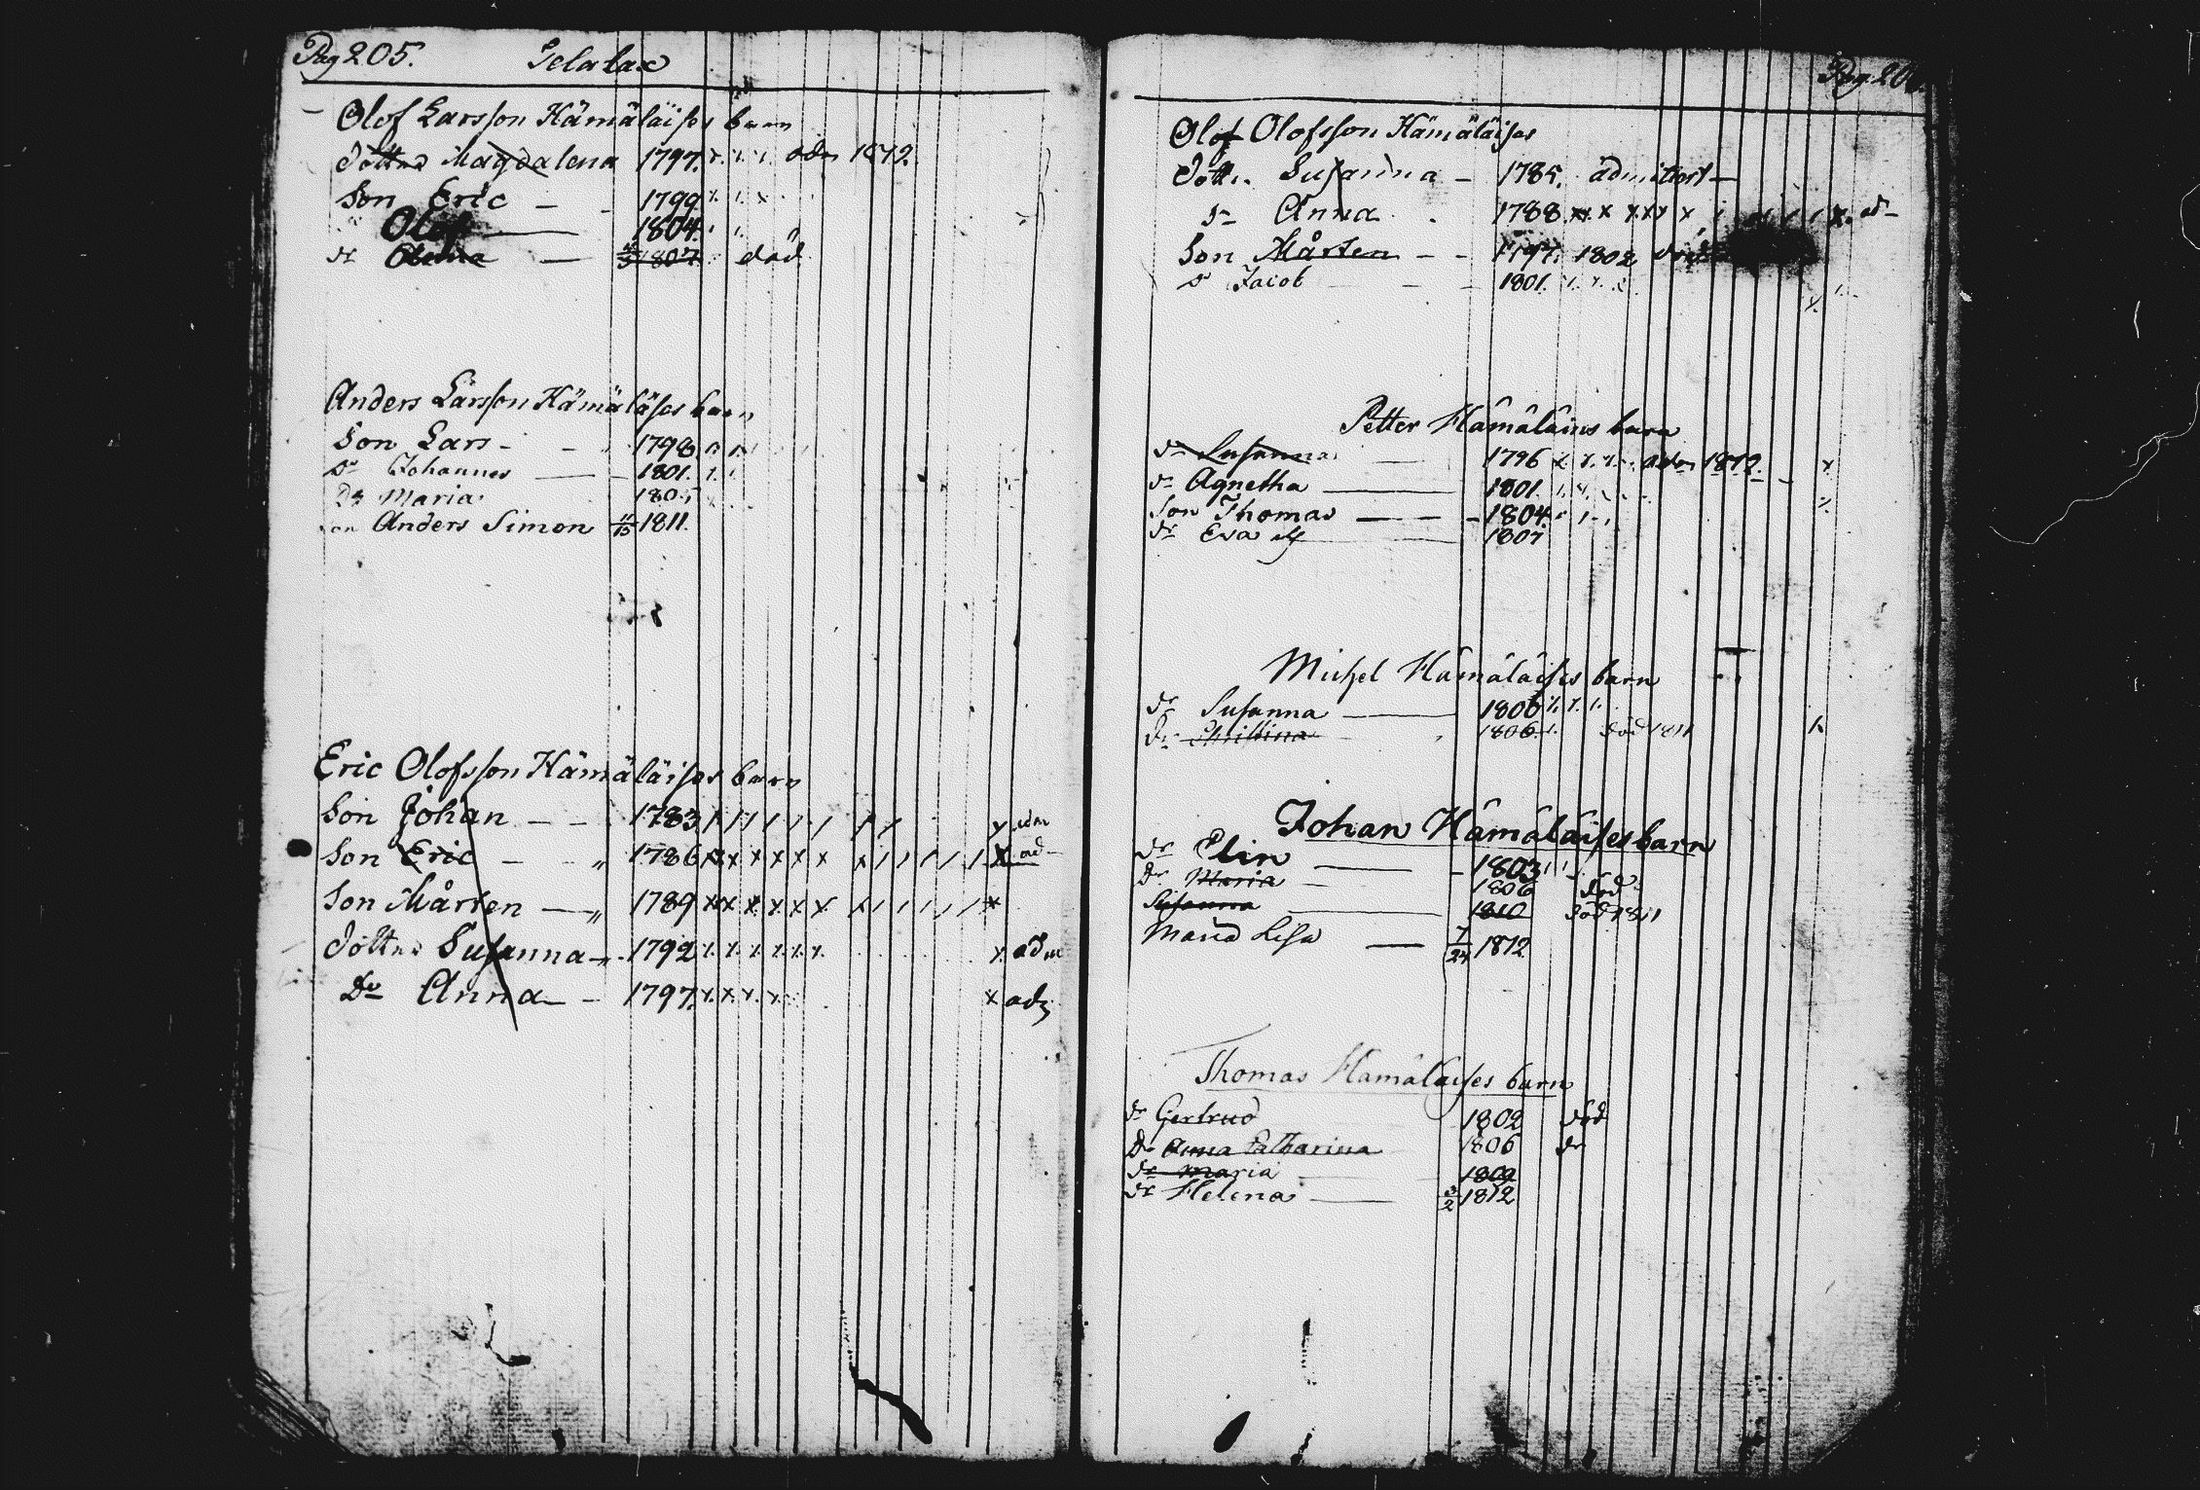 Pag 205. Selalax
Olof Larsson Hämäläises barn
Dotter Magdalena 1797. adm 1812
Son Eric 1799
Olof 1804.
dr 1807. död
Anders Larsson Hämäläises barn
Son Lars 1798
dr Johannes 1801.
Dr Maria 1805
son Anders Simon 11/15 1811.
Eric Olofsson Hämäläises barn
Son Johan 1783 x adm
Son Eric 1786 x x x x x x x x ad
Son Mårten 1789 x x x x x x x
Dotter Susanna 1792 x x x x x x x adm
Dr Anna 1797. x x x x x adm
Pag 206.
Olof Olofsson Hämäläises
Dotter Susanna 1785. admitterat
dr Anna 1788 x x x x x x x ad
Son Mårten 1797. 1802 död
dr Jacob 1801.
Petter Hämäläises barn
dr Susanna 1796 adm 1812
dr Agnetha 1801.
Son Thomas 1804
dr Eva 1807
Michel Hämäläises barn
dr Susanna 1806
Dr Christina 1806 död 1811
Johan Hämäläises barn
dr Elin 1803
Dr Maria 1806 död
Susanna 1810 död 1811
Maria Lisa 7/24 1812
Thomas Hämäläises barn
dr Gertrud 1802 död
Dr Anna Catharina 1806 dr
dr Maria 1809
dr Helena 3/2 1812